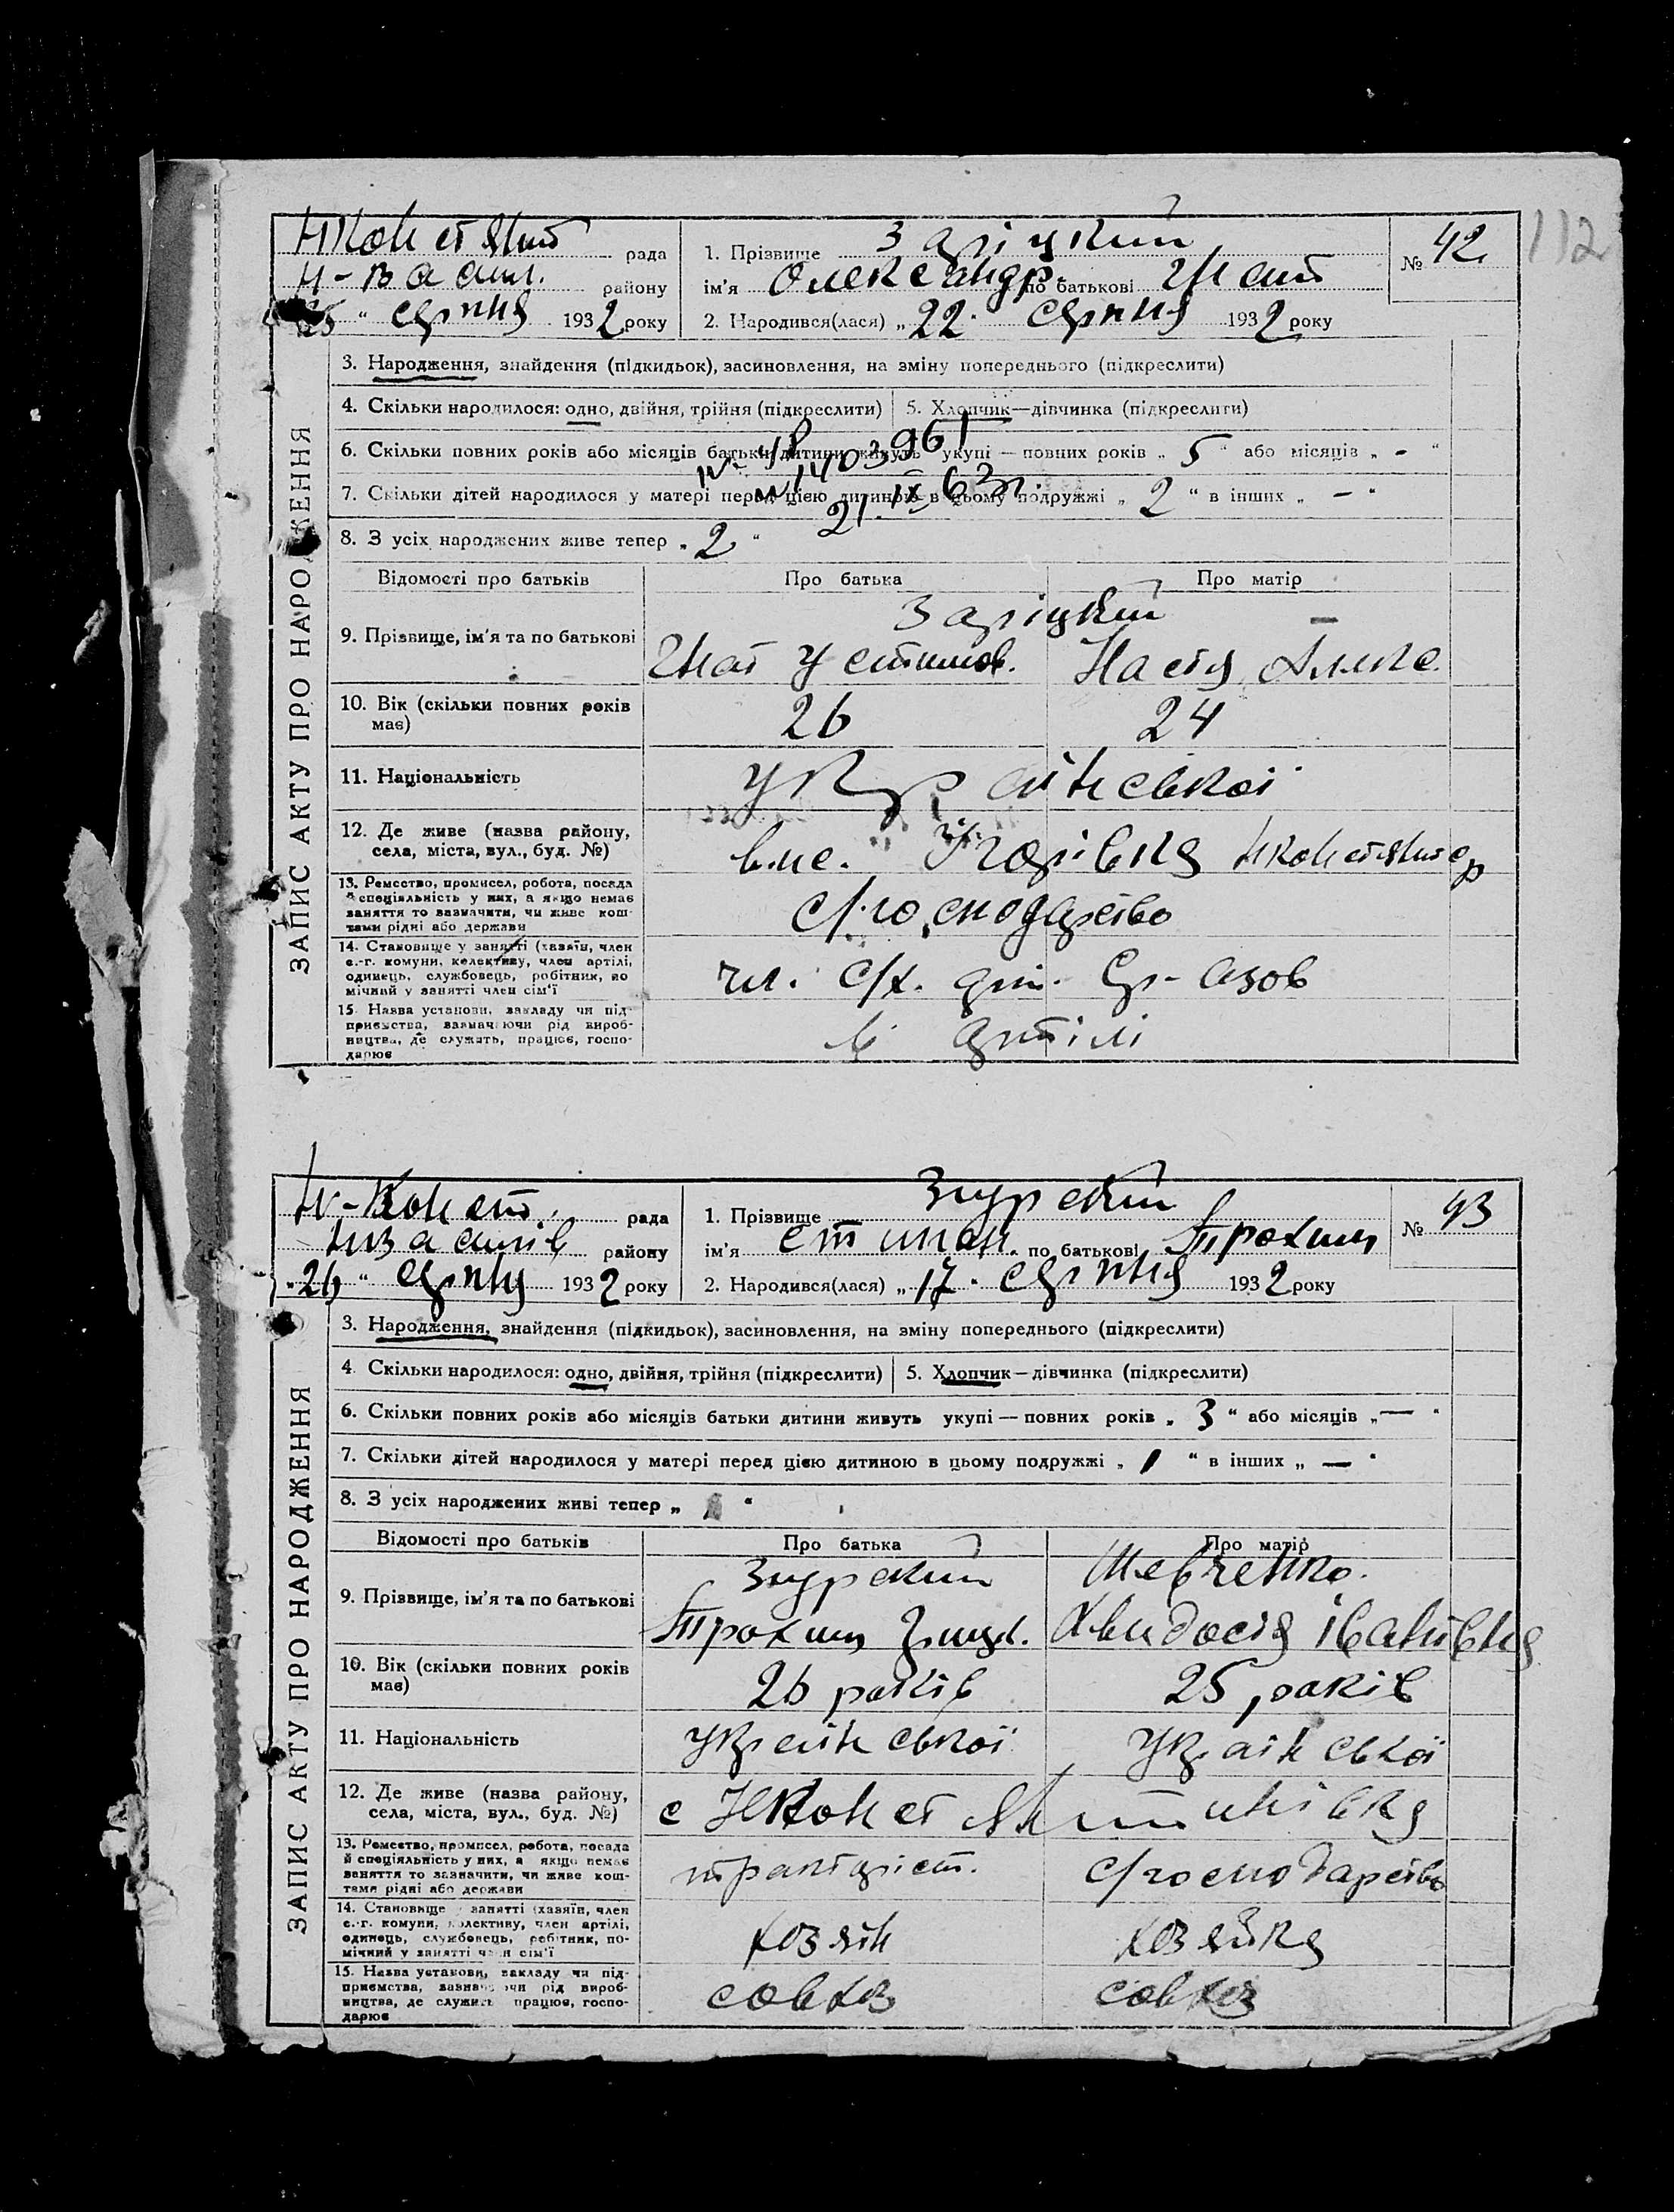 112
ЗАПИС АКТУ ПРО НАРОДЖЕННЯ
рада
Н-Васил. району
25 " серпня 1932 року
1. Прізвище Заріцкий
ім'я Олександр по батькові Гнат
2. Народився(лася) „ 22 серпня 1932 року
№ 42
3. Народження, знайдення (підкидьок), засиновлення, на зміну попереднього (підкреслити)
4. Скільки народилося: одно, двійня, трійня (підкреслити) 5. Хлопчик—дівчинка (підкреслити)
6. Скільки повних років або місяців батьки дитини живуть укупі — повних років „ 5 " або місяців „ - "
7. Скільки дітей народилося у матері перед цією дитиною в цьому подружжі „ 2 " в інших „ — "
21.IX 63г.
8. З усіх народжених живе тепер „ 2 "
Відомості про батьків Про батька Про матір
9. Прізвище, ім'я та по батькові Заріцкий —
Гнат Устимов. Настя
10. Вік (скільки повних років має) 26 24
11. Національність української
12. Де живе (назва району, села, міста, вул., буд. №)
13. Ремество, промисел, робота, посада й спеціяльність у них, а якщо немає заняття то зазначити, чи живе коштами рідні або держави с/господарство
14. Становище у занятті (хазяїн, член с.-г. комуни, колективу, член артілі, одинець, службовець, робітник, помічний у занятті член сім'ї чл. с/х. арт.
15. Назва установи, закладу чи підприємства, зазначаючи рід виробництва, де служить, працює, господарює в артілі
ЗАПИС АКТУ ПРО НАРОДЖЕННЯ
Н-Конст. рада
району
„ 26 " серпня 1932 року
1. Прізвище Згурский
ім'я Степан по батькові Трохим
2. Народився(лася) „ 17 серпня 1932 року
№ 43
3. Народження, знайдення (підкидьок), засиновлення, на зміну попереднього (підкреслити)
4. Скільки народилося: одно, двійня, трійня (підкреслити) 5. Хлопчик—дівчинка (підкреслити)
6. Скільки повних років або місяців батьки дитини живуть укупі — повних років „ 3 " або місяців „ — "
7. Скільки дітей народилося у матері перед цією дитиною в цьому подружжі „ 1 " в інших „ — "
8. З усіх народжених живі тепер „ "
Відомості про батьків Про батька Про матір
9. Прізвище, ім'я та по батькові Згурский Шевченко.
Трохим Хвидосія Іванівна
10. Вік (скільки повних років має) 26 років 25 років
11. Національність української української
12. Де живе (назва району, села, міста, вул., буд. №) с НКонстянтинівка
13. Ремество, промисел, робота, посада й спеціяльність у них, а якщо немає заняття то зазначити, чи живе коштами рідні або держави тракторіст. с/господарство
14. Становище у занятті (хазяїн, член с.-г. комуни, колективу, член артілі, одинець, службовець, робітник, помічний у занятті член сім'ї хозяїн хозяйка
15. Назва установи, закладу чи підприємства, зазначаючи рід виробництва, де служить, працює, господарює совхоз совхоз